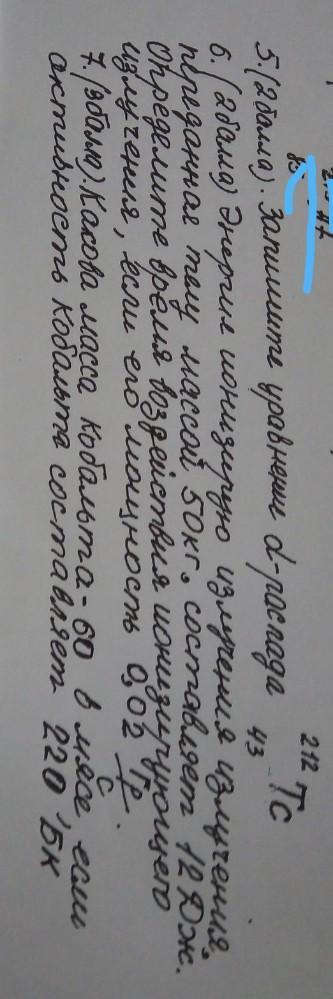 5. (2 балла). Запишите уравнении α-распада ²¹²₄₃Tc
6. (2 балла) Энергия ионизирую излучения излучения,
переданная телу массой 50кг. составляет 12 Дж.
Определите время воздействия ионизирующего
излучения, если его мощность 0,02 Гр/с.
7. (3балла). Какова масса кобальта-60 в мясе, если
активность кобальта составляет 220, Бк